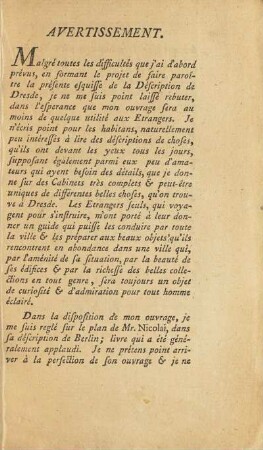 AVERTISSEMENT.
Malgré toutes les difficultés que j'ai d'abord
prévus, en formant le projet de faire paroî-
tre la présente esquisse de la Déscription de
Dresde, je ne me suis point laissé rebuter,
dans l'esperance que mon ouvrage sera au
moins de quelque utilité aux Etrangers. Je
n'écris point pour les habitans, naturellement
peu intéressés à lire des déscriptions de choses,
qu'ils ont devant les yeux tous les jours,
supposant également parmi eux peu d'ama-
teurs qui ayent besoin des détails, que je don-
ne sur des Cabinets très complets & peut-être
uniques de différentes belles choses, qu'on trou-
ve à Dresde. Les Etrangers seuls, qui voya-
gent pour s'instruire, m'ont porté à leur don-
ner un guide qui puisse les conduire par toute
la ville & les préparer aux beaux objets qu'ils
rencontrent en abondance dans une ville qui,
par l'aménité de sa situation, par la beauté de
ses édifices & par la richesse des belles collec-
tions en tout genre, sera toujours un objet
de curiosité & d'admiration pour tout homme
éclairé.
Dans la disposition de mon ouvrage, je
me suis reglé sur le plan de Mr. Nicolai, dans
sa déscription de Berlin; livre qui a été géné-
ralement applaudi. Je ne prétens point arri-
ver à la perfection de son ouvrage & je ne